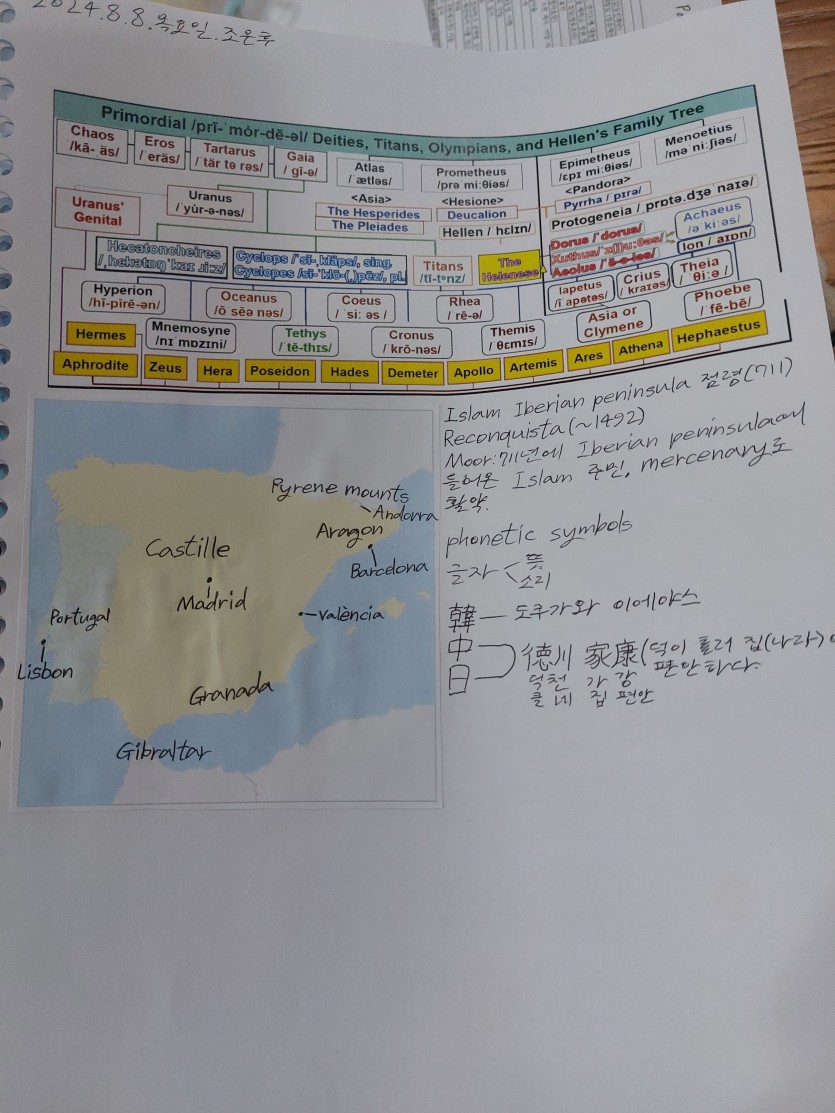 2024.8.8.목요일.조은후
Primordial /prī-ˈmȯr-dē-əl/ Deities, Titans, Olympians, and Hellen's Family Tree
Chaos
/kā- äs/
Eros
/ˈeräs/
Tartarus
/ˈtär tə rəs/
Gaia
/ˈgī-ə/
Atlas
/ˈætləs/
<Asia>
The Hesperides
The Pleiades
Prometheus
/prə miːθiəs/
<Hesione>
Deucalion
Hellen / hɛlɪn/
Epimetheus
/ɛpɪ miːθiəs/
<Pandora>
Pyrrha / pɪrə/
Menoetius
/mə niːʃiəs/
Protogeneia / prɒtə.dʒə naɪə/
Uranus'
Genital
Uranus
/ˈyu̇r-ə-nəs/
Achaeus
/ə kiːəs/
Dorus /ˈdorus/
Ion / aɪɒn/
Hecatoncheires
Cyclops /ˈsī-ˌkläps/, sing.
Cyclopes /sī-ˈklō-(ˌ)pēz/, pl.
Titans
/ˈtī-tᵊnz/
The
Helenese
Hyperion
/hī-pirē-ən/
Oceanus
/ō sēə nəs/
Coeus
/ˈsiː əs /
Rhea
/ rē-ə/
Iapetus
/ī ˈapətəs/
Crius
/ kraɪəs/
Theia
/ˈθiːə /
Mnemosyne
/nɪˈmɒzɪni/
Tethys
/ˈtē-thɪs/
Cronus
/ˈkrō-nəs/
Themis
/ˈθɛmɪs/
Asia or
Clymene
Phoebe
/ˈfē-bē/
Hermes
Aphrodite Zeus Hera Poseidon Hades Demeter Apollo Artemis Ares Athena Hephaestus
Pyrene mounts
Andorra
Aragon
Castille
Barcelona
Madrid
València
Portugal
Lisbon
Granada
Gibraltar
Islam Iberian peninsula 점령(711)
Reconquista(~1492)
Moor:711년에 Iberian peninsula에
들어온 Islam 주민. mercenary로
활약.
phonetic symbols
글자 뜻
소리
韓 — 도쿠가와 이에야스
中
日
徳川 家康(덕이 흘러 집(나라)이
편안하다.
덕천 가 강
클 내 집 편안